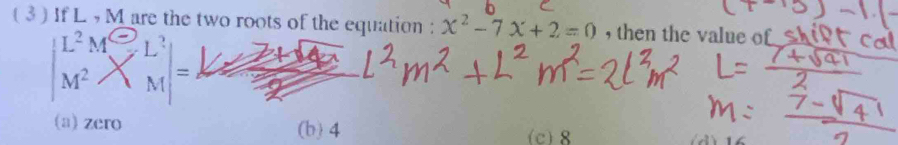 b c (4-15) -1.1-
(3) If L , M are the two roots of the equation : x² - 7x + 2 = 0 , then the value of shift cal
| L² M - L² | L²m² + L² m² = 2L²m² L = 7+√41 / 2
| M² M | =
m = 7-√41 / 2
(a) zero (b) 4 (c) 8 (d) 16